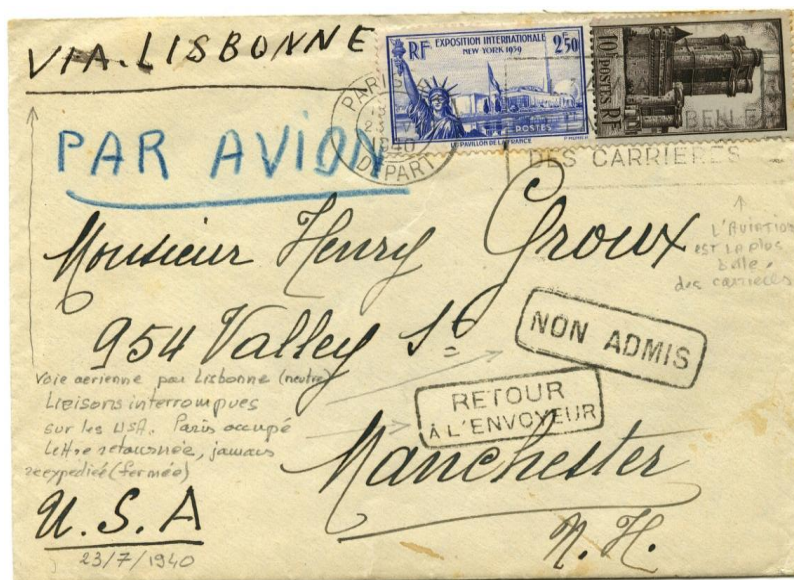 VIA. LISBONNE
RF EXPOSITION INTERNATIONALE 2F50
NEW YORK 1939
POSTES
LE PAVILLON DE LA FRANCE
10F POSTES RF
PARIS
1940
DEPART
BELLE
DES CARRIERES
PAR AVION
L'AVIATION
est la plus
belle
des carrieres
Monsieur Henry Groux
954 Valley St
NON ADMIS
RETOUR
À L'ENVOYEUR
Voie aerienne par Lisbonne (neutre)
Liaisons interrompues
sur les USA. Paris occupé
Lettre retournée, jamais
reexpédiée (fermée)
Manchester
N. H.
U. S. A
23/7/1940